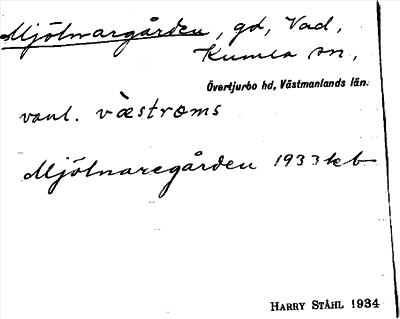 Mjölnargården, gd, Vad,
Kumla sn,
Övertjurbo hd, Västmanlands län.
vanl. vàstroms
Mjölnaregården 1933 kb
HARRY STÅHL 1934